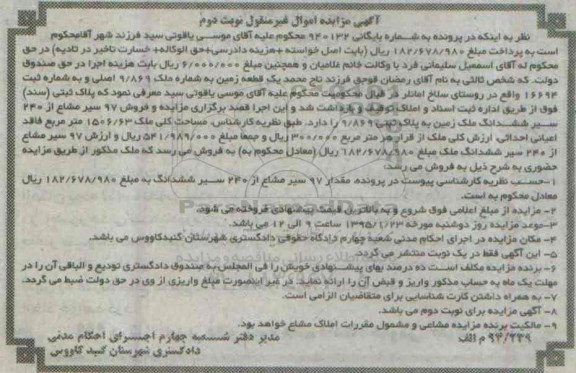 آگهی مزایده اموال غیرمنقول نوبت دوم
نظر به اینکه در پرونده به شماره بایگانی ۹۴۰۱۳۲ محکوم علیه آقای موسی یاقوتی سید فرزند شهر آقامحکوم
است به پرداخت مبلغ ۱۸۲/۶۷۸/۹۸۰ ریال (بابت اصل خواسته+هزینه دادرسی+حق الوکاله+ خسارت تاخیر در تادیه) در حق
محکوم له آقای اسمعیل سلیمانی فرد با وکالت خانم غلامیان و همچنین مبلغ ۶/۰۰۰/۰۰۰ ریال بابت هزینه اجرا در حق صندوق
دولت. که شخص ثالثی به نام آقای رمضان قوجق فرزند تاج محمد یک قطعه زمین به شماره ملک ۹/۸۶۹ اصلی و به شماره ثبت
۱۶۶۹۴ واقع در روستای سلاخ اماتلر در قبال محکومیت محکوم علیه آقای موسی یاقوتی سید معرفی نمود که پلاک ثبتی (سند)
فوق از طریق اداره ثبت اسناد و املاک توقیف و بازداشت شد و این اجرا قصد برگزاری مزایده و فروش ۹۷ سیر مشاع از ۲۴۰
سیر ششدانگ ملک زمین به پلاک ثبتی ۹/۸۶۹ را دارد. طبق نظریه کارشناس، مساحت کلی ملک ۱۵۰۶/۶۳ متر مربع فاقد
اعیانی احداثی، ارزش کلی ملک از قرار هر متر مربع ۳۰۰/۰۰۰ ریال و جمعا مبلغ ۵۴۱/۹۸۹/۰۰۰ ریال و ارزش ۹۷ سیر مشاع
از ۲۴۰ سیر ششدانگ ملک مبلغ ۱۸۲/۶۷۸/۹۸۰ ریال (معادل محکوم به) به فروش می رسد که ملک مذکور از طریق مزایده
حضوری به شرح ذیل به فروش می رسد:
۱-حسب نظریه کارشناسی پیوست در پرونده، مقدار ۹۷ سیر مشاع از ۲۴۰ سیر ششدانگ به مبلغ ۱۸۲/۶۷۸/۹۸۰ ریال
معادل محکوم به است.
۲- مزایده از مبلغ اعلامی فوق شروع و به بالاترین قیمت پیشنهادی فروخته می شود.
۳-موعد مزایده روز دوشنبه مورخه ۱۳۹۵/۱/۲۳ ساعت ۹ الی ۱۲ می باشد.
۴- مکان مزایده در اجرای احکام مدنی شعبه چهارم دادگاه حقوقی دادگستری شهرستان گنبدکاووس می باشد.
۵- این آگهی فقط در یک نوبت منتشر می گردد.
۶- برنده مزایده مکلف است ده درصد بهای پیشنهادی خویش را فی المجلس به صندوق دادگستری تودیع و الباقی آن را در
مهلت یک ماه به حساب مذکور واریز و قبض آن را ارائه نماید. در غیر اینصورت مبلغ واریزی از وی در حق دولت ضبط می گردد.
۷- به همراه داشتن کارت شناسایی برای متقاضیان الزامی است.
۸- آگهی مزایده برای نوبت دوم می باشد.
۹- مالکیت برنده مزایده مشاعی و مشمول مقررات املاک مشاع خواهد بود.
۹۴/۲۳۹ م الف
مدیر دفتر شعبه چهارم اجرای احکام مدنی
دادگستری شهرستان گنبد کاووس